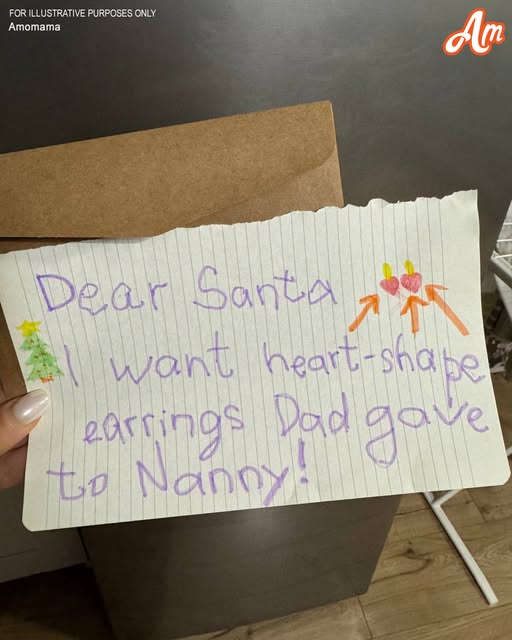 FOR ILLUSTRATIVE PURPOSES ONLY
Amomama
Am
Dear Santa
I want heart-shape
earrings Dad gave
to Nanny!